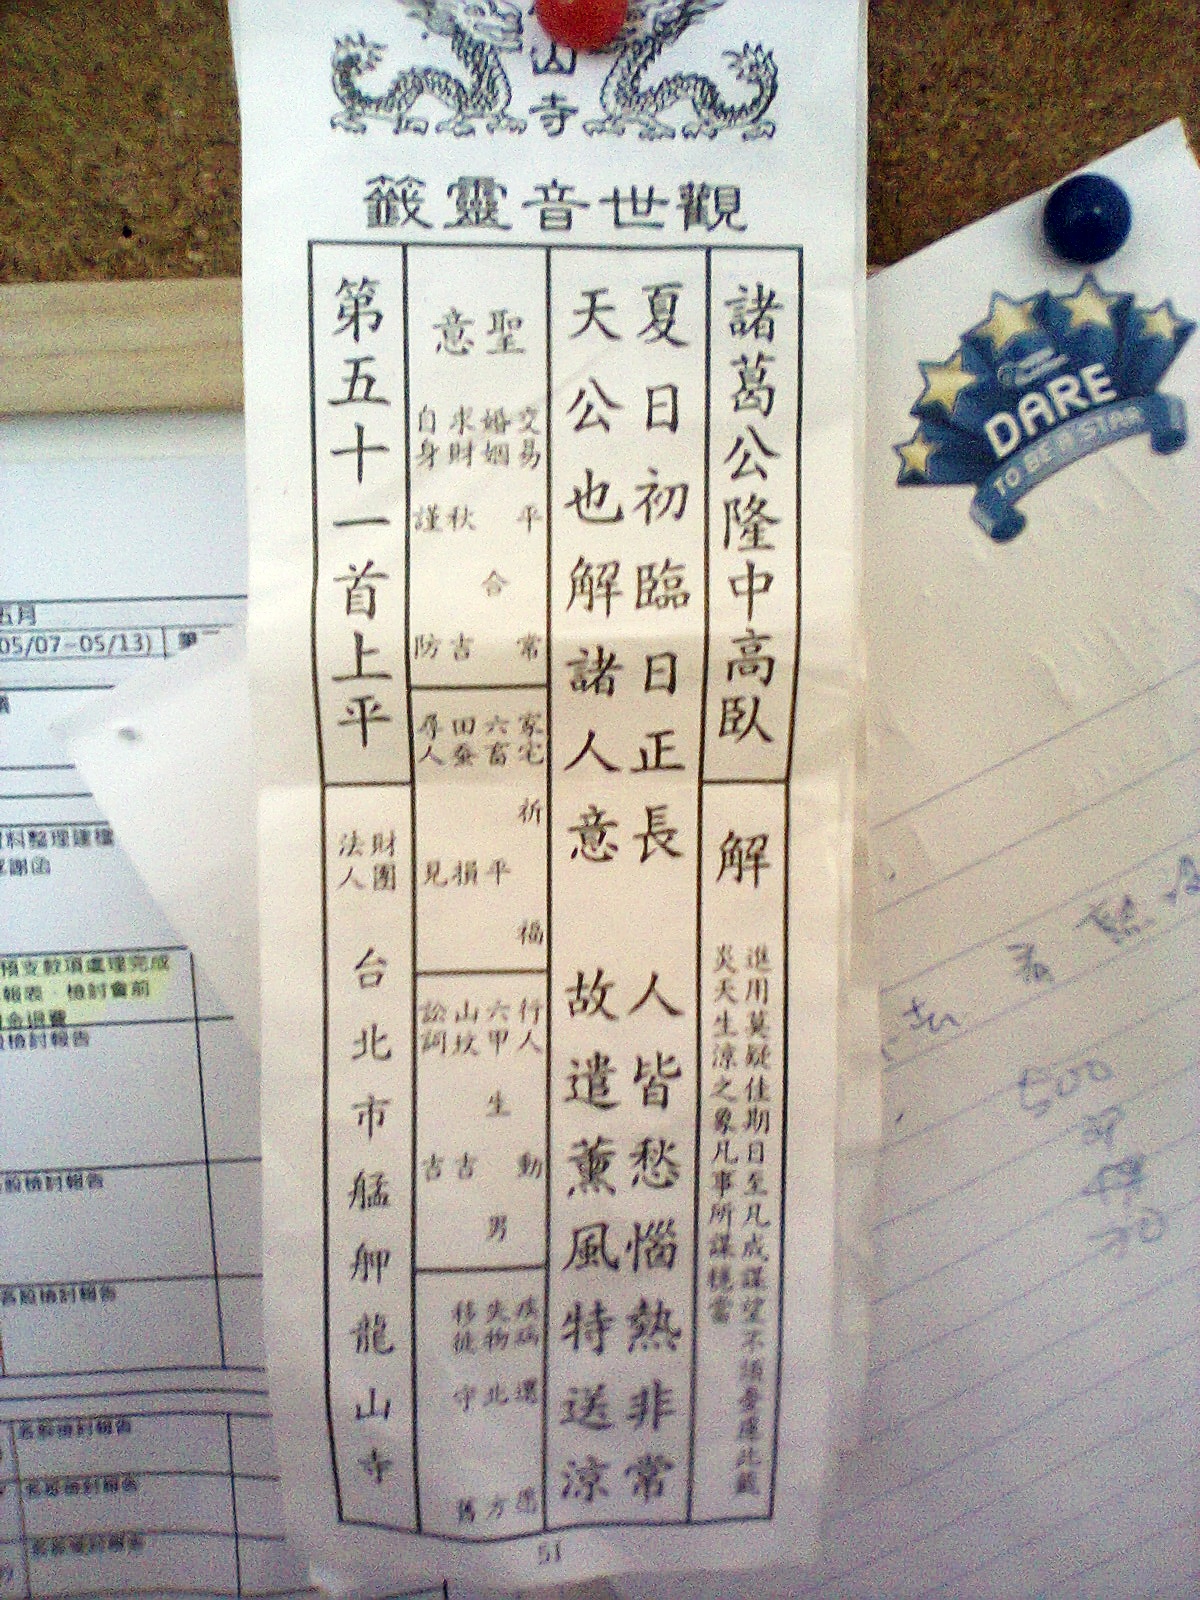 山
寺
觀世音靈籤
諸葛公隆中高臥
解
進用莫疑佳期日至凡成謀望不須憂慮此籤
炎天生涼之象凡事所謀穩當
夏日初臨日正長 人皆愁惱熱非常
天公也解諸人意 故遣薰風特送涼
聖意
交易 平常
婚姻 合
求財 秋吉
自身 謹防
家宅 祈福
六畜 平
田蚕 損
尋人 見
行人 動
六甲 生男
山坟 吉
訟詞 吉
疾病 還
失物 北方
移徙 守舊
第五十一首上平
財團
法人
台北市艋舺龍山寺
51
DARE
TO BE A STAR
五月
05/07-05/13) 第一
料整理建檔
謝函
預支款項處理完成
報表、檢討會前
檢討報告
檢討報告
檢討報告
500